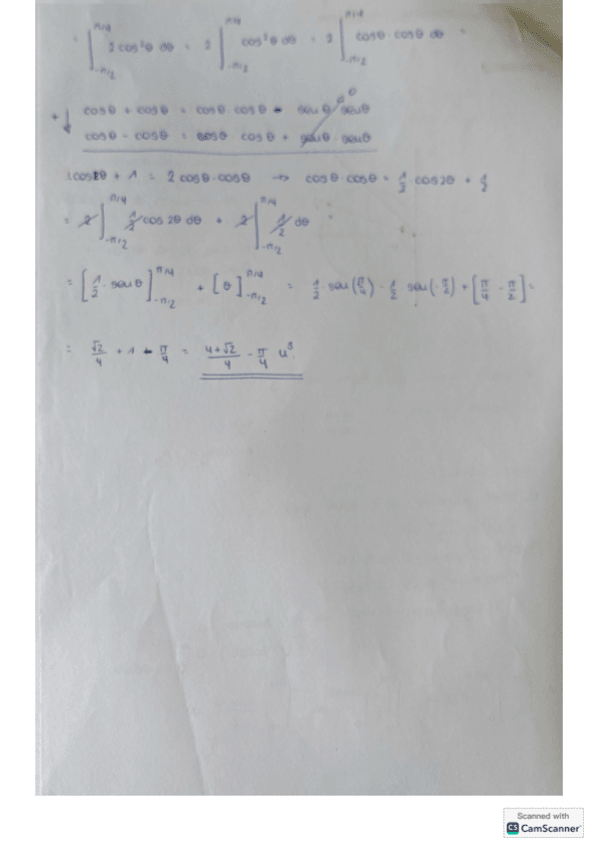 = ∫_{-π/2}^{π/4} 2cos²θ dθ = 2 ∫_{-π/2}^{π/4} cos²θ dθ = 2 ∫_{-π/2}^{π/4} cosθ · cosθ dθ =
+↓ cosθ + cosθ = cosθ · cosθ - senθ · senθ 0
cosθ - cosθ = cosθ · cosθ + senθ · senθ
cos2θ + 1 = 2cosθ · cosθ → cosθ · cosθ = 1/2 cos2θ + 1/2
= 2 ∫_{-π/2}^{π/4} 1/2 cos2θ dθ + 2 ∫_{-π/2}^{π/4} 1/2 dθ
= [1/2 · senθ]_{-π/2}^{π/4} + [θ]_{-π/2}^{π/4} = 1/2 · sen(π/4) - 1/2 sen(-π/2) + [π/4 - π/2] =
= √2/4 + 1 - π/4 = (4+√2)/4 - π/4 u³.
Scanned with
CS CamScanner